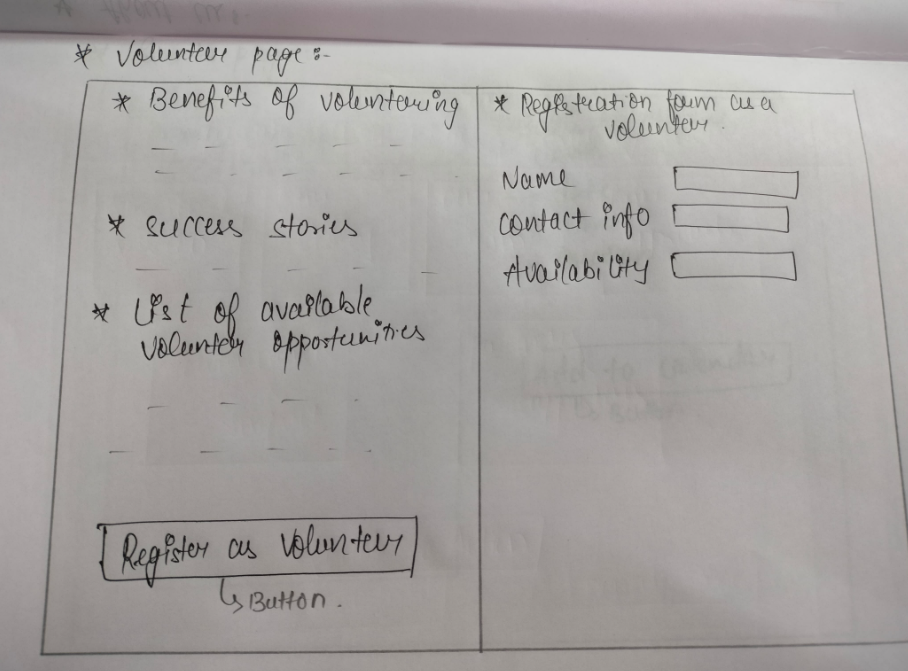 * Volunteer page :-
* Benefits of volunteering
* Success stories
* List of available
volunteer opportunities
Register as Volunteer
↳ Button.
* Registration form as a
volunteer.
Name
Contact info
Availability